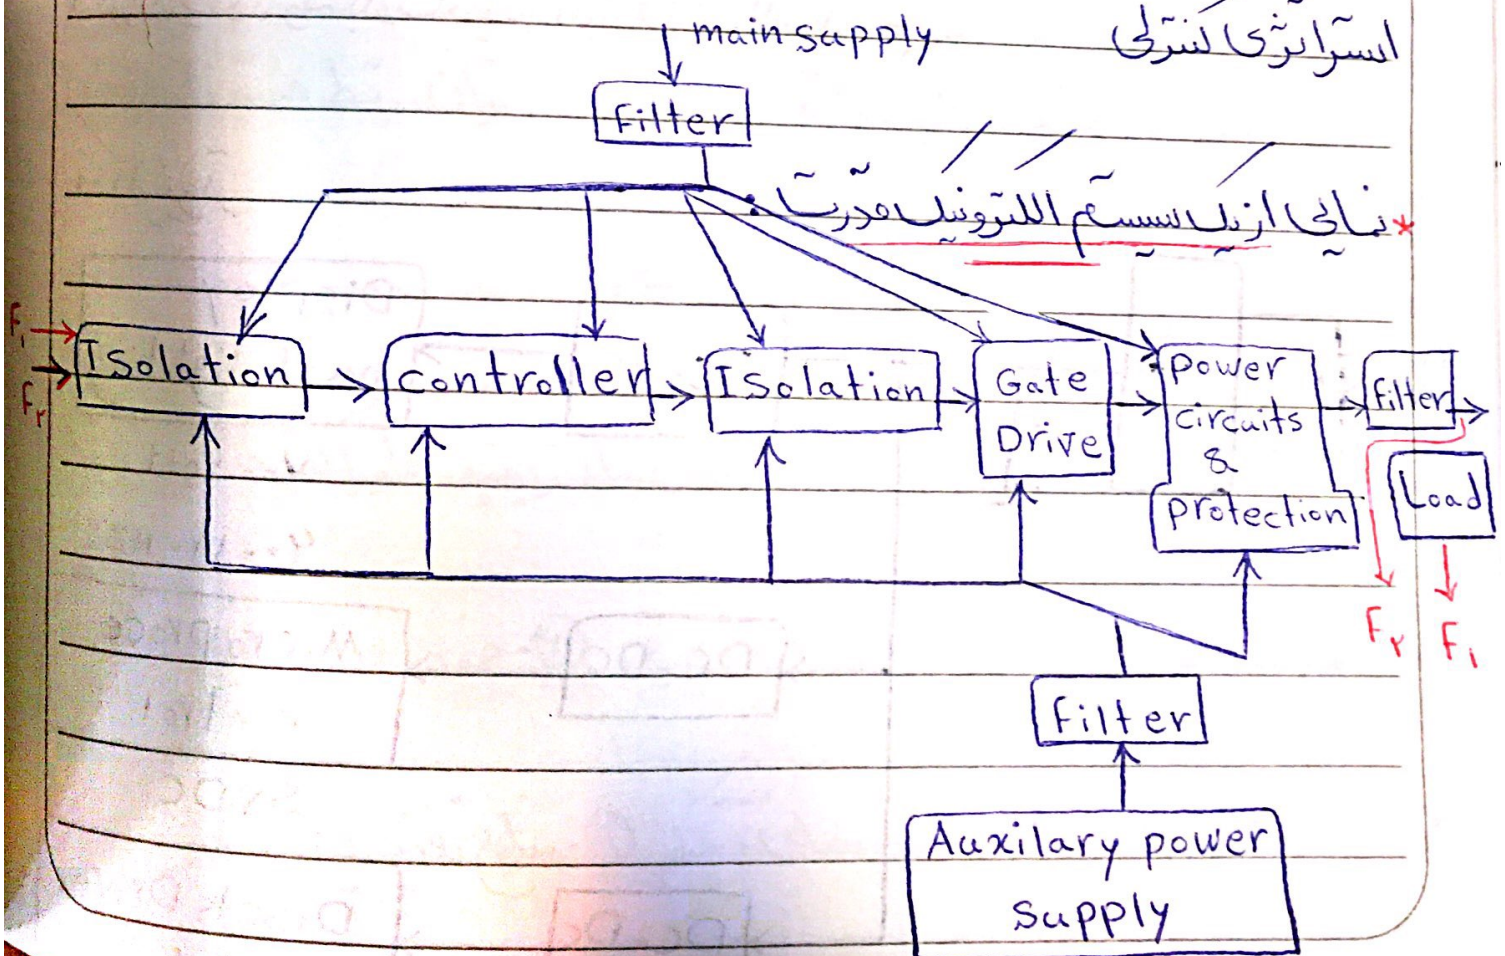 main supply
استراتژی کنترلی
Filter
* نمایی از یک سیستم الکترونیک قدرت :
F۱
F۲
Isolation
controller
Isolation
Gate
Drive
power
circuits
&
protection
filter
Load
F۲
F۱
Filter
Auxilary power
supply